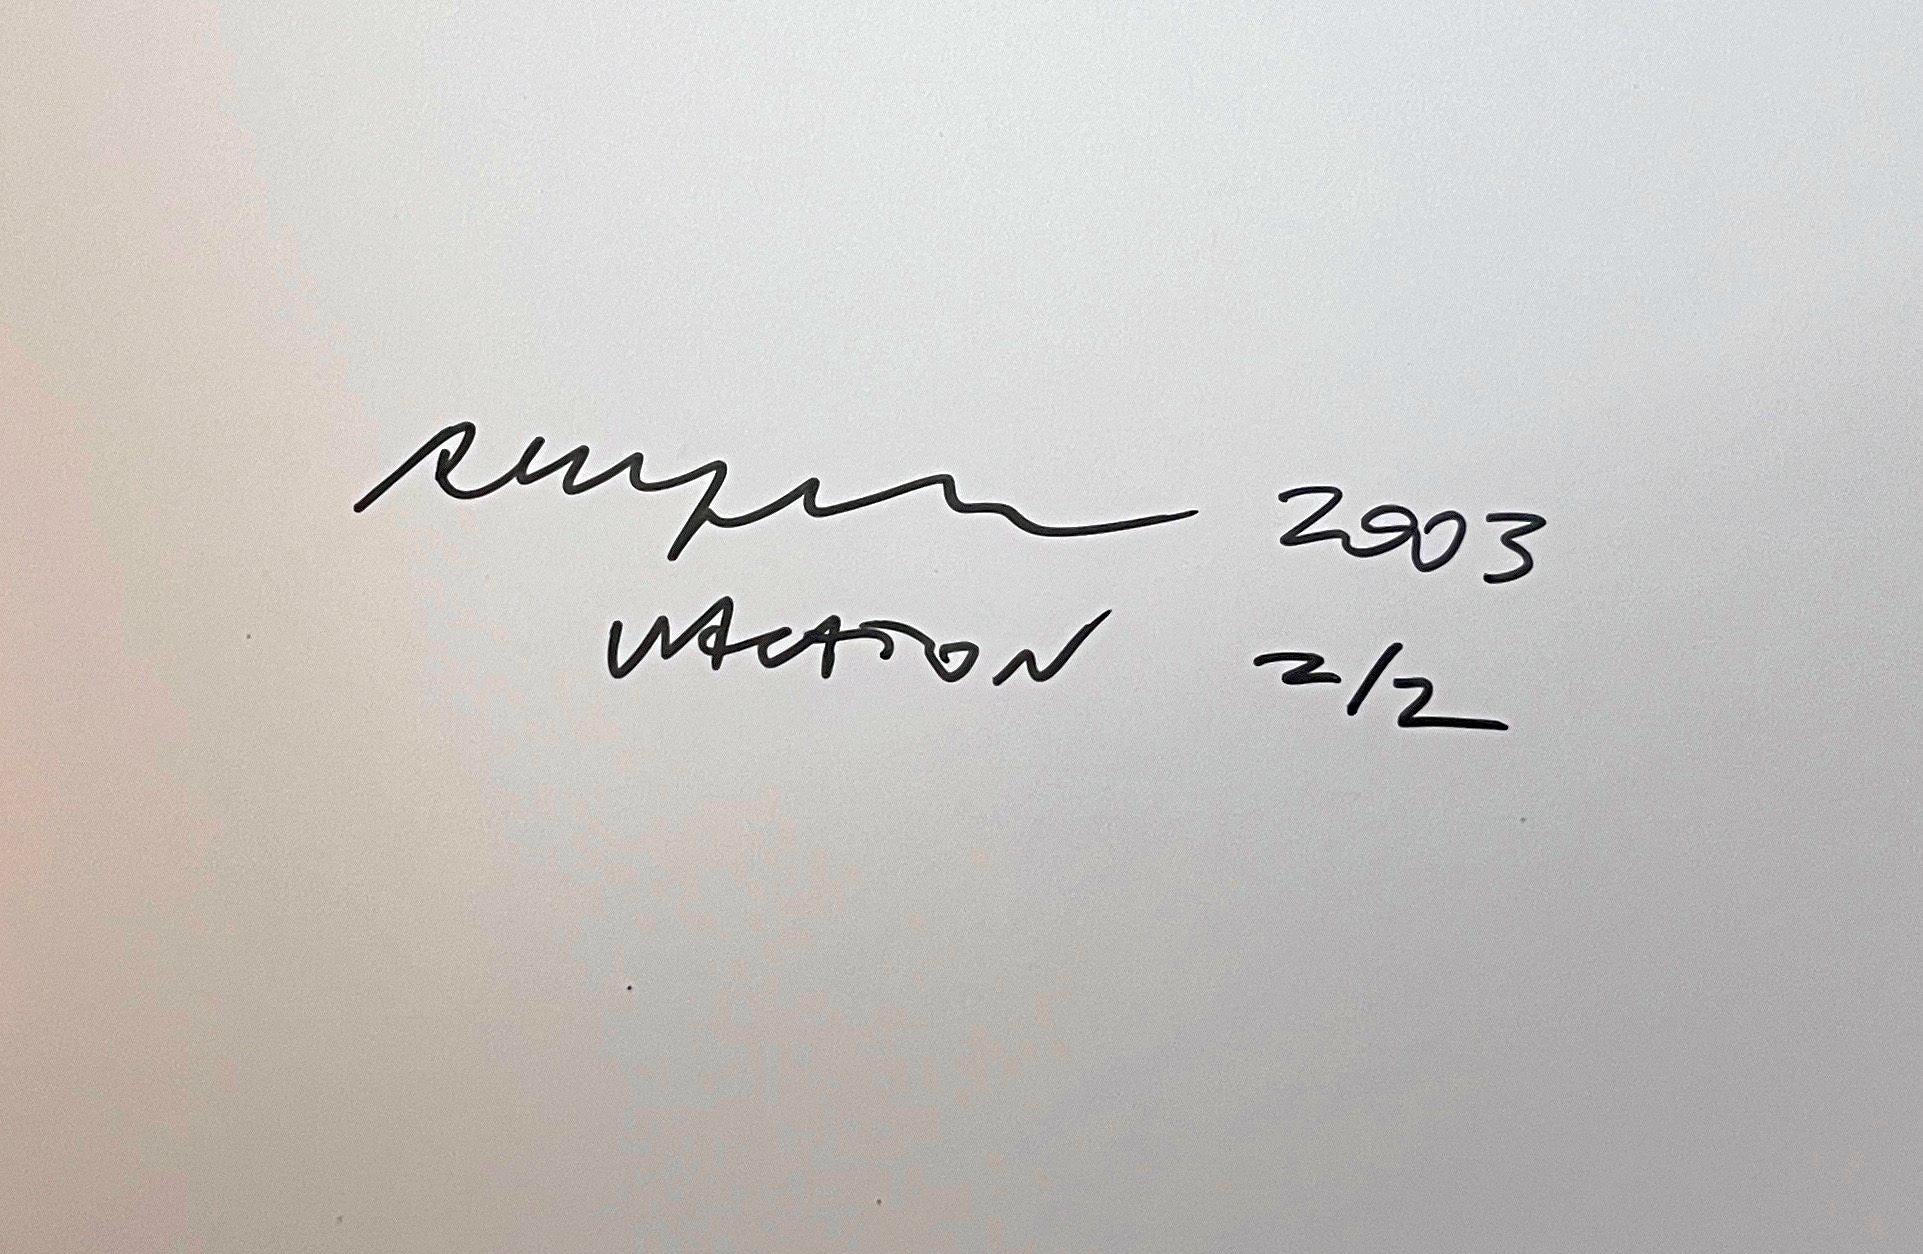 2003
VACATION 2/2